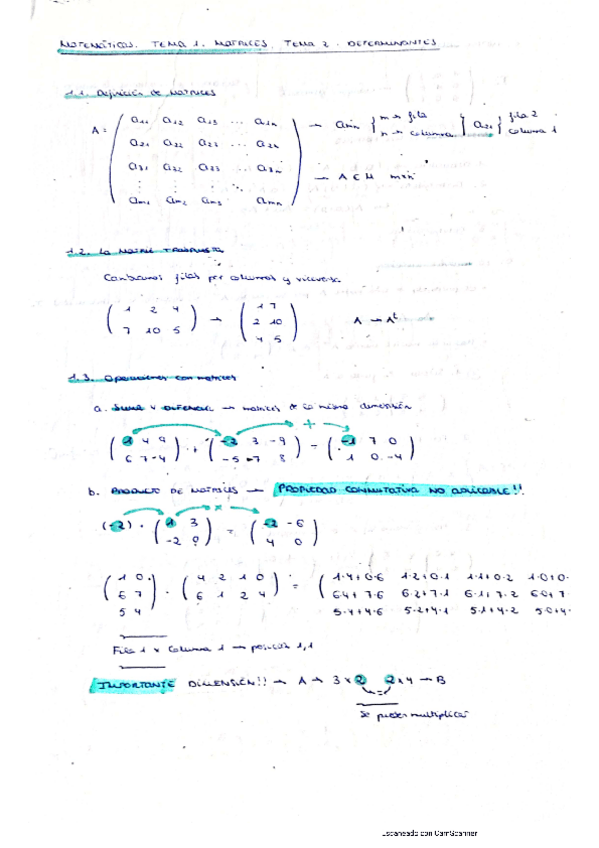 MATEMÁTICAS. TEMA 1. MATRICES. TEMA 2. DETERMINANTES
1.1. Definición de MATRICES
A = ( a11 a12 a13 ... a1n → amn { m → fila } a21 { fila 2
n → columna columna 1
a21 a22 a23 ... a2n
a31 a32 a33 ... a3n → A ∈ M mxn
⋮ ⋮ ⋮ ⋱ ⋮
am1 am2 am3 amn )
1.2. La MATRIZ TRASPUESTA
Cambiamos filas por columnas y viceversa
( 1 2 4 → ( 1 7 A → At
7 10 5 ) 2 10
4 5 )
1.3. Operaciones con matrices
a. SUMA Y DIFERENCIA → matrices de la misma dimensión
+
( 1 4 9 + ( -2 3 -9 = ( -1 7 0
6 7 -4 ) -5 -7 8 ) 1 0 -4 )
b. PRODUCTO DE MATRICES → PROPIEDAD CONMUTATIVA NO APLICABLE!!
x
(-2) · ( 1 3 = ( -2 -6
-2 0 ) 4 0 )
( 1 0 · ( 4 2 1 0 = ( 1·4+0·6 1·2+0·1 1·1+0·2 1·0+0·
6 7 6 1 2 4 ) 6·4+7·6 6·2+7·1 6·1+7·2 6·0+7·
5 4 ) 5·4+4·6 5·2+4·1 5·1+4·2 5·0+4·
Fila 1 x Columna 1 → posición 1,1
IMPORTANTE DIMENSIÓN!! → A → 3 x 2 2 x 4 → B
=
Se pueden multiplicar
Escaneado con CamScanner